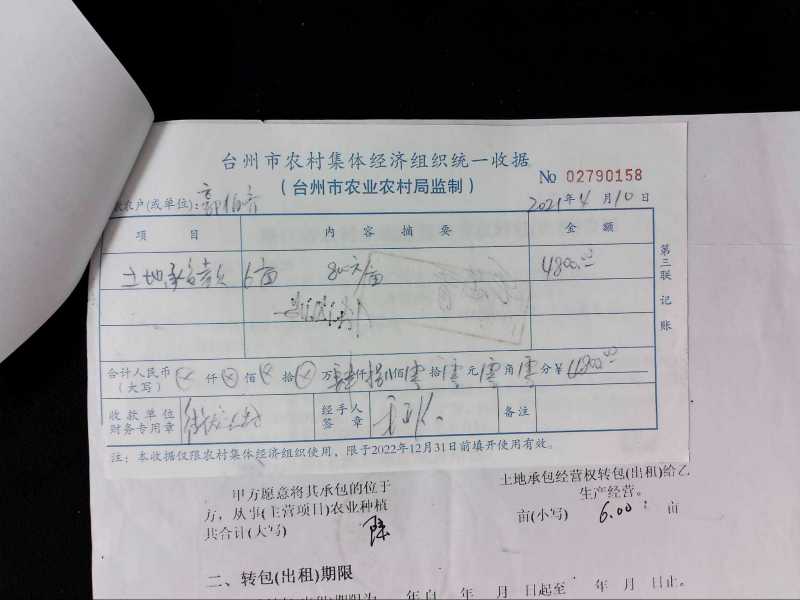 台州市农村集体经济组织统一收据
(台州市农业农村局监制)
No 02790158
农户(或单位):
2021年4月10日
项 目 内 容 摘 要 金 额
土地承包款 6亩 800元/亩 4800.00
第三联 记账
合计人民币(大写) ⊗仟⊗佰⊗拾⊗万肆仟捌佰零拾零元零角零分¥4800.00
收款单位财务专用章
经手人签章
备注
注:本收据仅限农村集体经济组织使用,限于2022年12月31日前填开使用有效。
甲方愿意将其承包的位于 土地承包经营权转包(出租)给乙
方,从事(主营项目)农业种植 生产经营。
共合计(大写) 陆 亩(小写) 6.00 亩
二、转包(出租)期限
年自 年 月 日起至 年 月 日止。